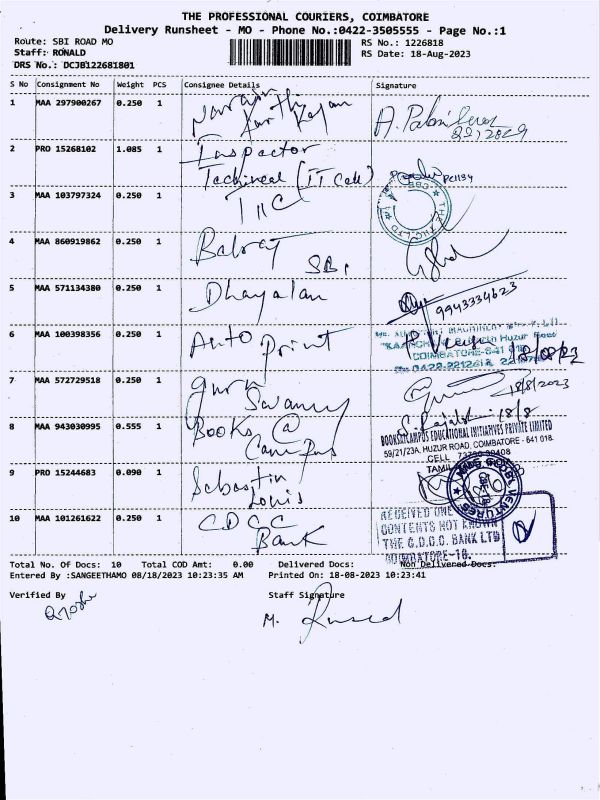 THE PROFESSIONAL COURIERS, COIMBATORE
Delivery Runsheet - MO - Phone No.:0422-3505555 - Page No.:1
Route: SBI ROAD MO RS No.: 1226818
Staff: RONALD RS Date: 18-Aug-2023
DRS No.: DCJB122681801
S No Consignment No Weight PCS Consignee Details Signature
1 MAA 297900267 0.250 1
2 PRO 15268102 1.085 1 Inspector
Techineal (IT Cell) PC1134
3 MAA 103797324 0.250 1 TIIC
4 MAA 860919862 0.250 1 Balraj
SBI
5 MAA 571134380 0.250 1 Dhayalan 9943334623
6 MAA 100398356 0.250 1 Auto Print 18/08/23
COIMBATORE-641 018
7 MAA 572729518 0.250 1 Guru
Swamy 18/8/2023
8 MAA 943030995 0.555 1 Books @
Campus 18/8
BOOKSATCAMPUS EDUCATIONAL INITIATIVES PRIVATE LIMITED
59/21/23A, HUZUR ROAD, COIMBATORE - 641 018.
CELL
TAMIL
9 PRO 15244683 0.090 1 Sebastin
Louis
10 MAA 101261622 0.250 1 CDCC
Bank
RECEIVED ONE
CONTENTS NOT KNOWN
THE C.D.C.C. BANK LTD
COIMBATORE-18.
Total No. Of Docs: 10 Total COD Amt: 0.00 Delivered Docs: Non Delivered Docs:
Entered By :SANGEETHAMO 08/18/2023 10:23:35 AM Printed On: 18-08-2023 10:23:41
Verified By Staff Signature
M.